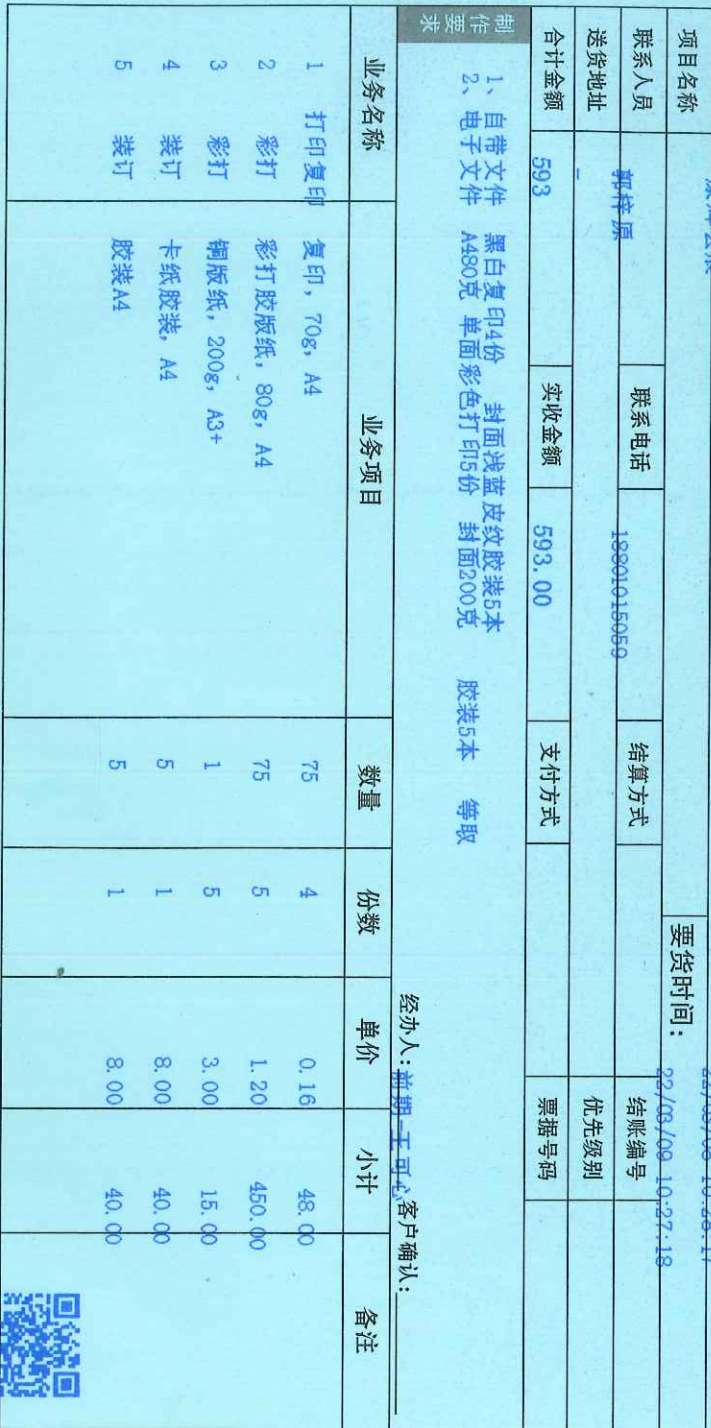 项目名称
要货时间: 22/03/09 10:27:18
联系人员 郭梓原 联系电话 18801015059 结算方式 结账编号
送货地址 - 优先级别
合计金额 593 实收金额 593.00 支付方式 票据号码
制作要求
1、自带文件 黑白复印4份 封面浅蓝皮纹胶装5本
2、电子文件 A480克 单面彩色打印5份 封面200克 胶装5本 等取
经办人: 前期-王可心 客户确认:
业务名称 业务项目 数量 份数 单价 小计 备注
1 打印复印 复印, 70g, A4 75 4 0.16 48.00
2 彩打 彩打胶版纸, 80g, A4 75 5 1.20 450.00
3 彩打 铜版纸, 200g, A3+ 1 5 3.00 15.00
4 装订 卡纸胶装, A4 5 1 8.00 40.00
5 装订 胶装A4 5 1 8.00 40.00